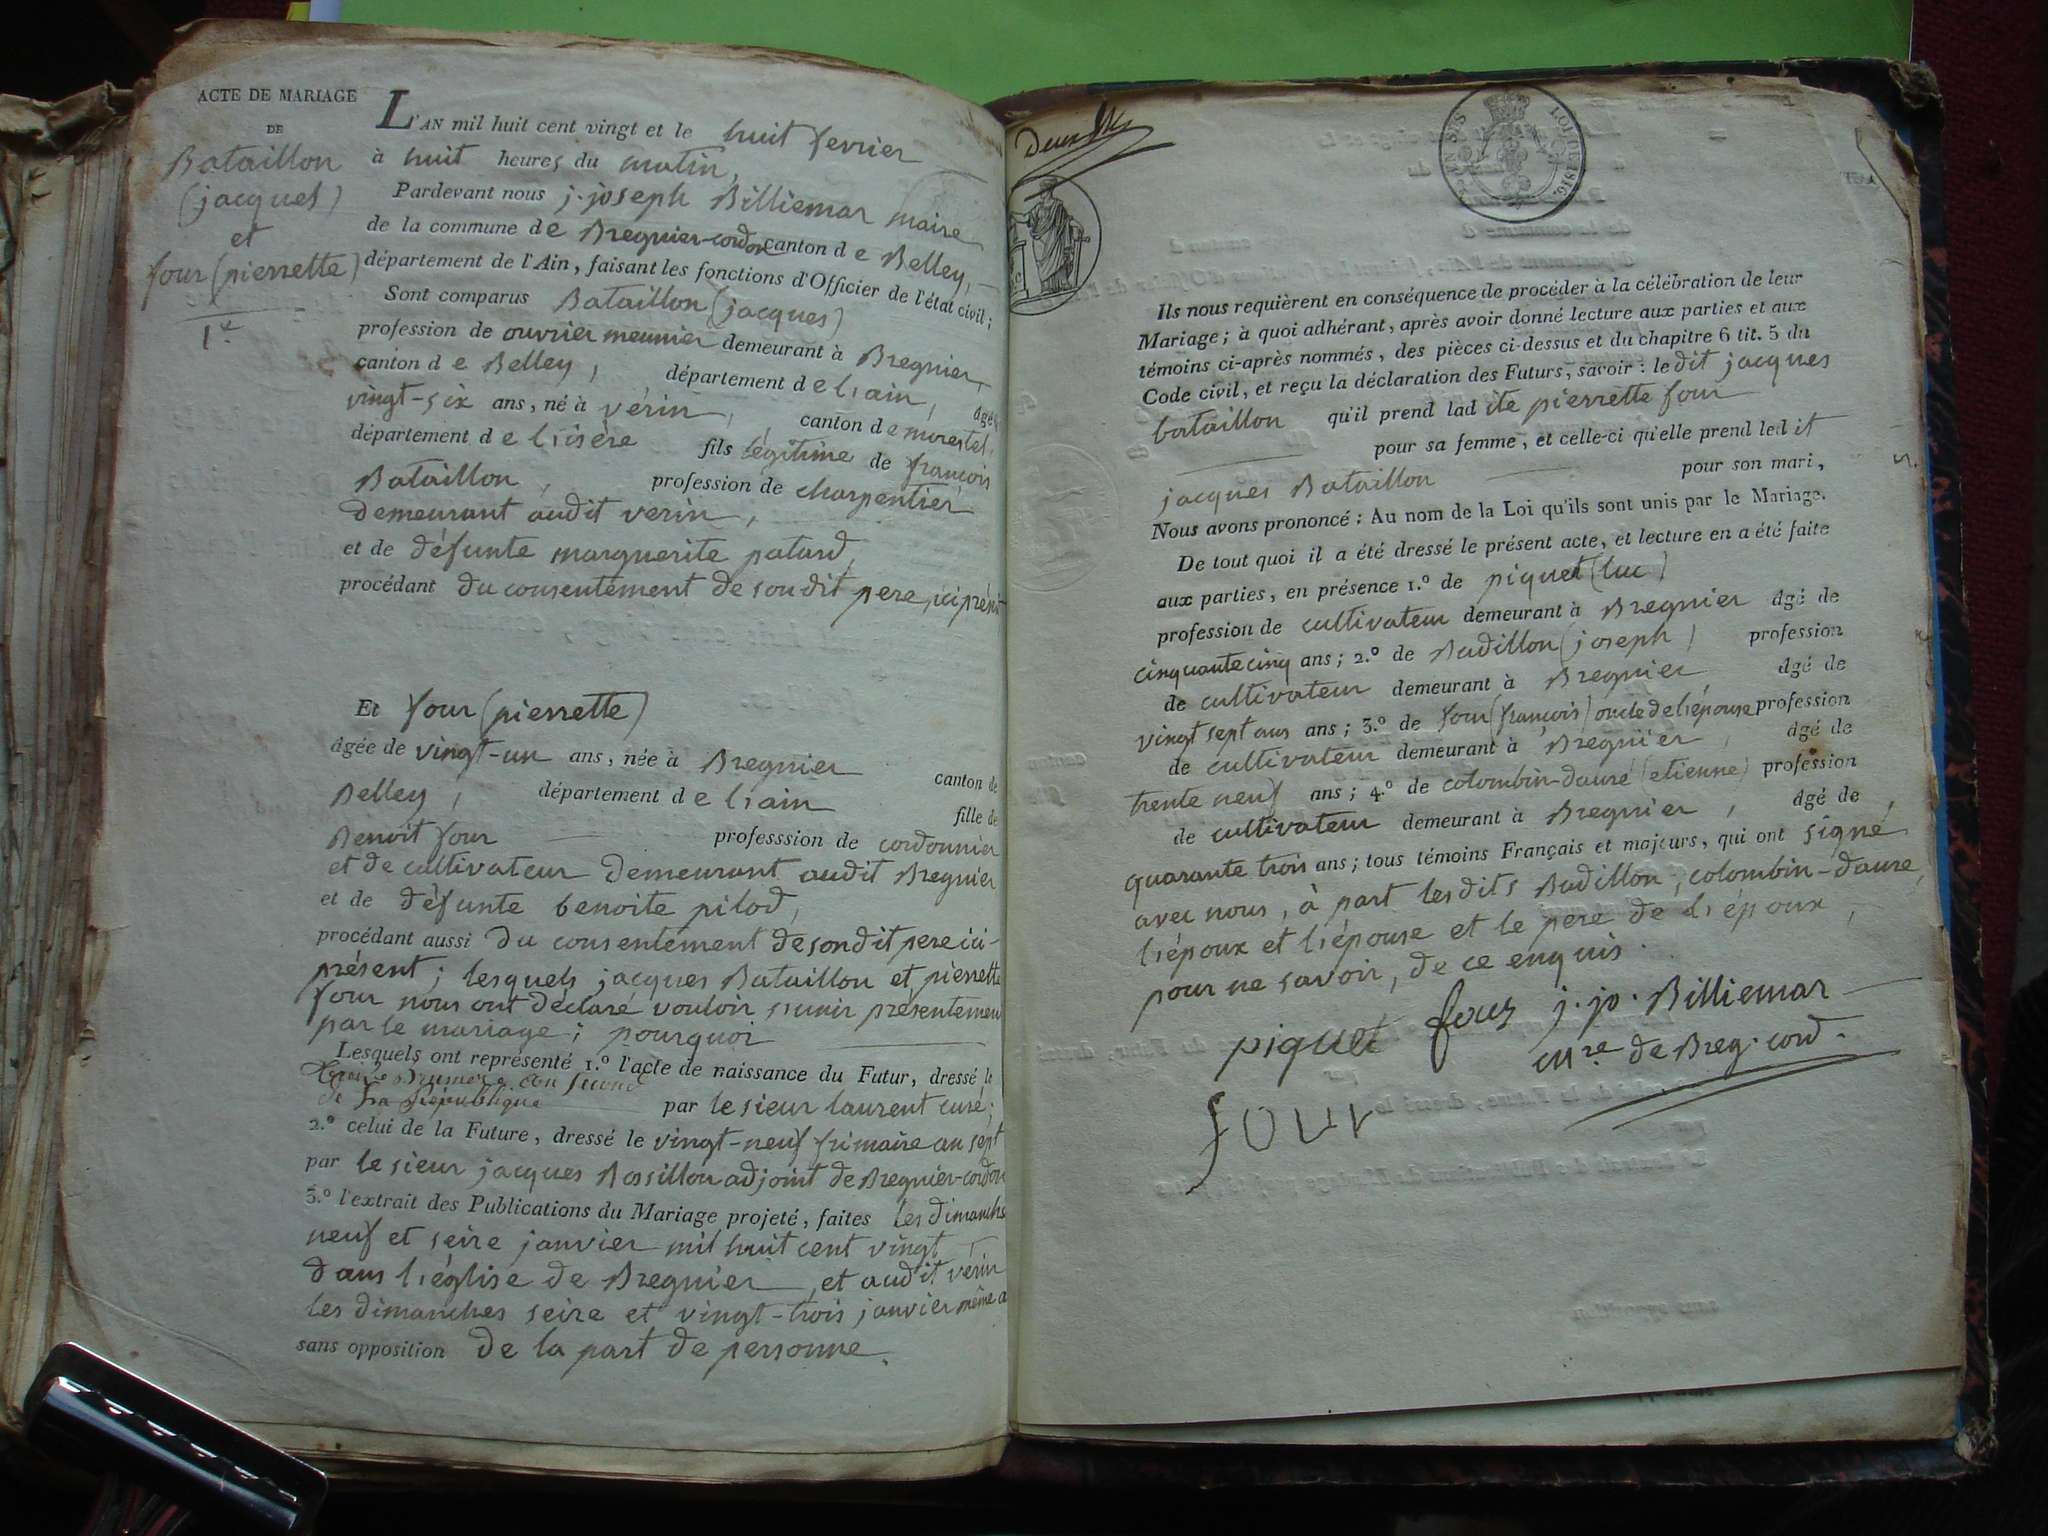 ACTE DE MARIAGE
DE
Bataillon
(jacques)
et
four (pierrette)
1.e
L'AN mil huit cent vingt et le huit fevrier
à huit heures du matin,
Pardevant nous j. joseph Billiemar maire
de la commune de Bregnier-cordon canton de Belley,
département de l'Ain, faisant les fonctions d'Officier de l'état civil;
Sont comparus Bataillon (jacques)
profession de ouvrier meunier demeurant à Bregnier,
canton de Belley, département de l'ain, âgé
vingt-six ans, né à vérin, canton de morestel,
département de l'isère fils légitime de françois
Bataillon, profession de charpentier
demeurant audit verin,
et de défunte marguerite patard,
procédant du consentement de son dit pere, ici présent
Et four (pierrette)
âgée de vingt-un ans, née à Bregnier canton de
Belley, département de l'ain fille de
Benoit four professsion de cordonnier
et de cultivateur demeurant audit Bregnier
et de défunte benoite pilod,
procédant aussi du consentement de son dit pere ici-
présent; lesquels jacques Bataillon et pierrette
four nous ont déclaré vouloir s'unir présentement
par le mariage; pourquoi
Lesquels ont représenté 1.º l'acte de naissance du Futur, dressé le
de la République par le sieur laurent curé;
2.º celui de la Future, dressé le vingt-neuf frimaire an sept
par le sieur jacques Bossillon adjoint de Bregnier-cordon
3.º l'extrait des Publications du Mariage projeté, faites les dimanches
neuf et seire janvier mil huit cent vingt
dans l'église de Bregnier, et audit vérin
les dimanches seire et vingt-trois janvier même a
sans opposition de la part de personne.
LOUIS 1816.
Ils nous requièrent en conséquence de procéder à la célébration de leur
Mariage; à quoi adhérant, après avoir donné lecture aux parties et aux
témoins ci-après nommés, des pièces ci-dessus et du chapitre 6 tit. 5 du
Code civil, et reçu la déclaration des Futurs, savoir: le dit jacques
bataillon qu'il prend ladite pierrette four
pour sa femme, et celle-ci qu'elle prend ledit
jacques Bataillon pour son mari,
Nous avons prononcé: Au nom de la Loi qu'ils sont unis par le Mariage.
De tout quoi il a été dressé le présent acte, et lecture en a été faite
aux parties, en présence 1.º de piquet (luc)
profession de cultivateur demeurant à Bregnier âgé de
cinquante cinq ans; 2.º de Badillon (joseph) profession
de cultivateur demeurant à Bregnier âgé de
vingt sept ans ans; 3.º de four (françois) oncle de l'épouse profession
de cultivateur demeurant à Bregnier, âgé de
trente neuf ans; 4.º de colombin-dauré (etienne) profession
de cultivateur demeurant à Bregnier, âgé de
quarante trois ans; tous témoins Français et majeurs, qui ont signé
avec nous, à part les dits Badillon, colombin-daure,
l'époux et l'épouse et le pere de l'époux,
pour ne savoir, de ce enquis.
piquet four j. jo. Billiemar
m.re de Breg. cord.
four